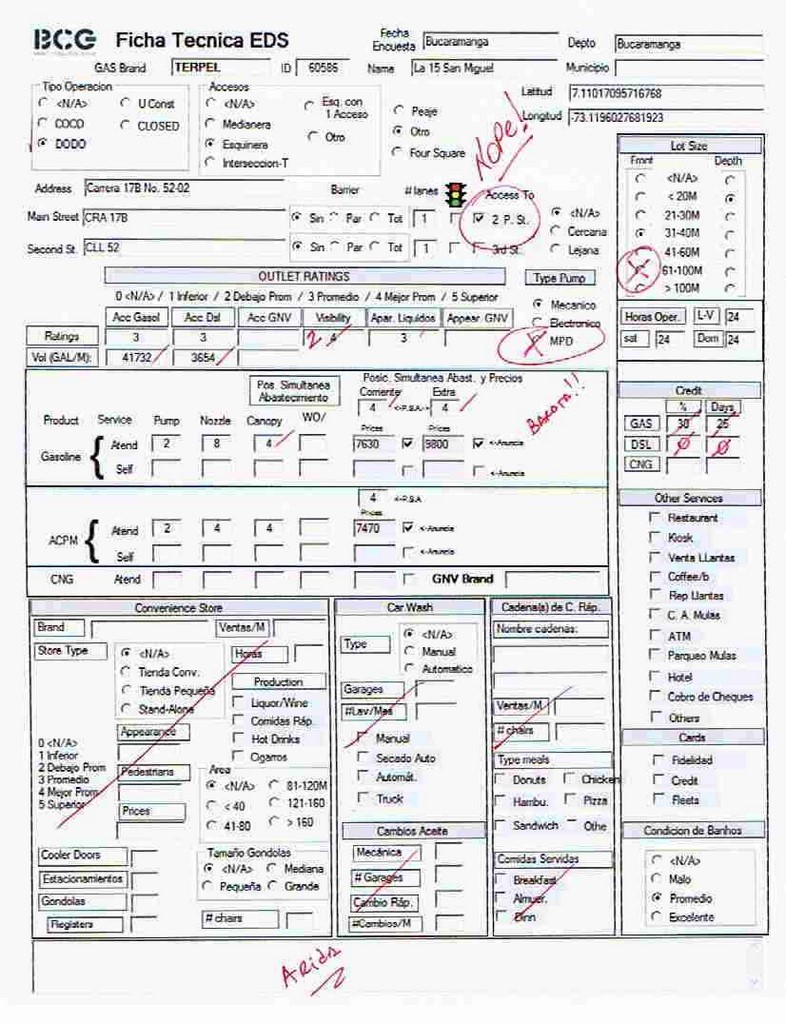 BCG Ficha Tecnica EDS
Fecha Encuesta Bucaramanga Depto Bucaramanga
GAS Brand TERPEL ID 60586 Name La 15 San Miguel Municipio
Tipo Operacion
<N/A> U Const
COCO CLOSED
DODO
Accesos
<N/A> Esq. con 1 Acceso
Medianera
Esquinera Otro
Interseccion-T
Peaje
Otro
Four Square
Latitud 7.11017095716768
Longitud -73.1196027681923
NOPE!
Address Carrera 17B No. 52-02 Barrier # lanes Access To
Main Street CRA 17B Sin Par Tot 1 2 P. St.
Second St. CLL 52 Sin Par Tot 1 3rd St.
<N/A>
Cercana
Lejana
Lot Size
Front Depth
<N/A>
< 20M
21-30M
31-40M
41-60M
61-100M
> 100M
OUTLET RATINGS
0 <N/A> / 1 Inferior / 2 Debajo Prom / 3 Promedio / 4 Mejor Prom / 5 Superior
Acc Gasol Acc Dsl Acc GNV Visibility Apar. Liquidos Appear. GNV
Ratings 3 3 2 4 3
Vol (GAL/M): 41732 3654
Type Pump
Mecanico
Electronico
MPD
Horas Oper. L-V 24
sat 24 Dom 24
Pos. Simultanea Abastecimiento
Posic. Simultanea Abast. y Precios
Corriente Extra
4 <-P.S.A-> 4
Product Service Pump Nozzle Canopy WO/ Prices Prices
Gasoline Atend 2 8 4 7630 9800 <-Anuncia
Self <-Anuncia
Barata!!
4 <-P.S.A
Prices
ACPM Atend 2 4 4 7470 <-Anuncia
Self <-Anuncia
CNG Atend GNV Brand
Credit
% Days
GAS 30 25
DSL 0 0
CNG
Other Services
Restaurant
Kiosk
Venta LLantas
Coffee/b
Rep Llantas
C. A. Mulas
ATM
Parqueo Mulas
Hotel
Cobro de Cheques
Others
Cards
Fidelidad
Credit
Fleets
Condicion de Banhos
<N/A>
Malo
Promedio
Excelente
Convenience Store
Brand Ventas/M
Store Type
<N/A>
Tienda Conv.
Tienda Pequeña
Stand-Alone
Horas
Production
Liquor/Wine
Comidas Ráp.
Hot Drinks
Cigarros
Appearance
0 <N/A>
1 Inferior
2 Debajo Prom
3 Promedio
4 Mejor Prom
5 Superior
Pedestrians
Prices
Area
<N/A> 81-120M
< 40 121-160
41-80 > 160
Cooler Doors
Estacionamientos
Gondolas
Registers
Tamaño Gondolas
<N/A> Mediana
Pequeña Grande
# chairs
Car Wash
Type
<N/A>
Manual
Automatico
Garages
#Lav/Mes
Manual
Secado Auto
Automát.
Truck
Cambios Aceite
Mecánica
# Garages
Cambio Ráp.
#Cambios/M
Cadena(s) de C. Ráp.
Nombre cadenas:
Ventas/M
# chairs
Type meals
Donuts Chicken
Hambu. Pizza
Sandwich Othe
Comidas Servidas
Breakfast
Almuer.
Dinn
Arida